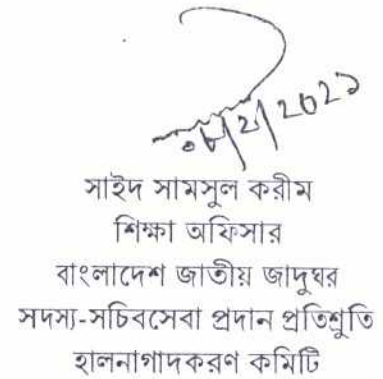 ০৮/২/২০২১
সাইদ সামসুল করীম
শিক্ষা অফিসার
বাংলাদেশ জাতীয় জাদুঘর
সদস্য-সচিবসেবা প্রদান প্রতিশ্রুতি
হালনাগাদকরণ কমিটি